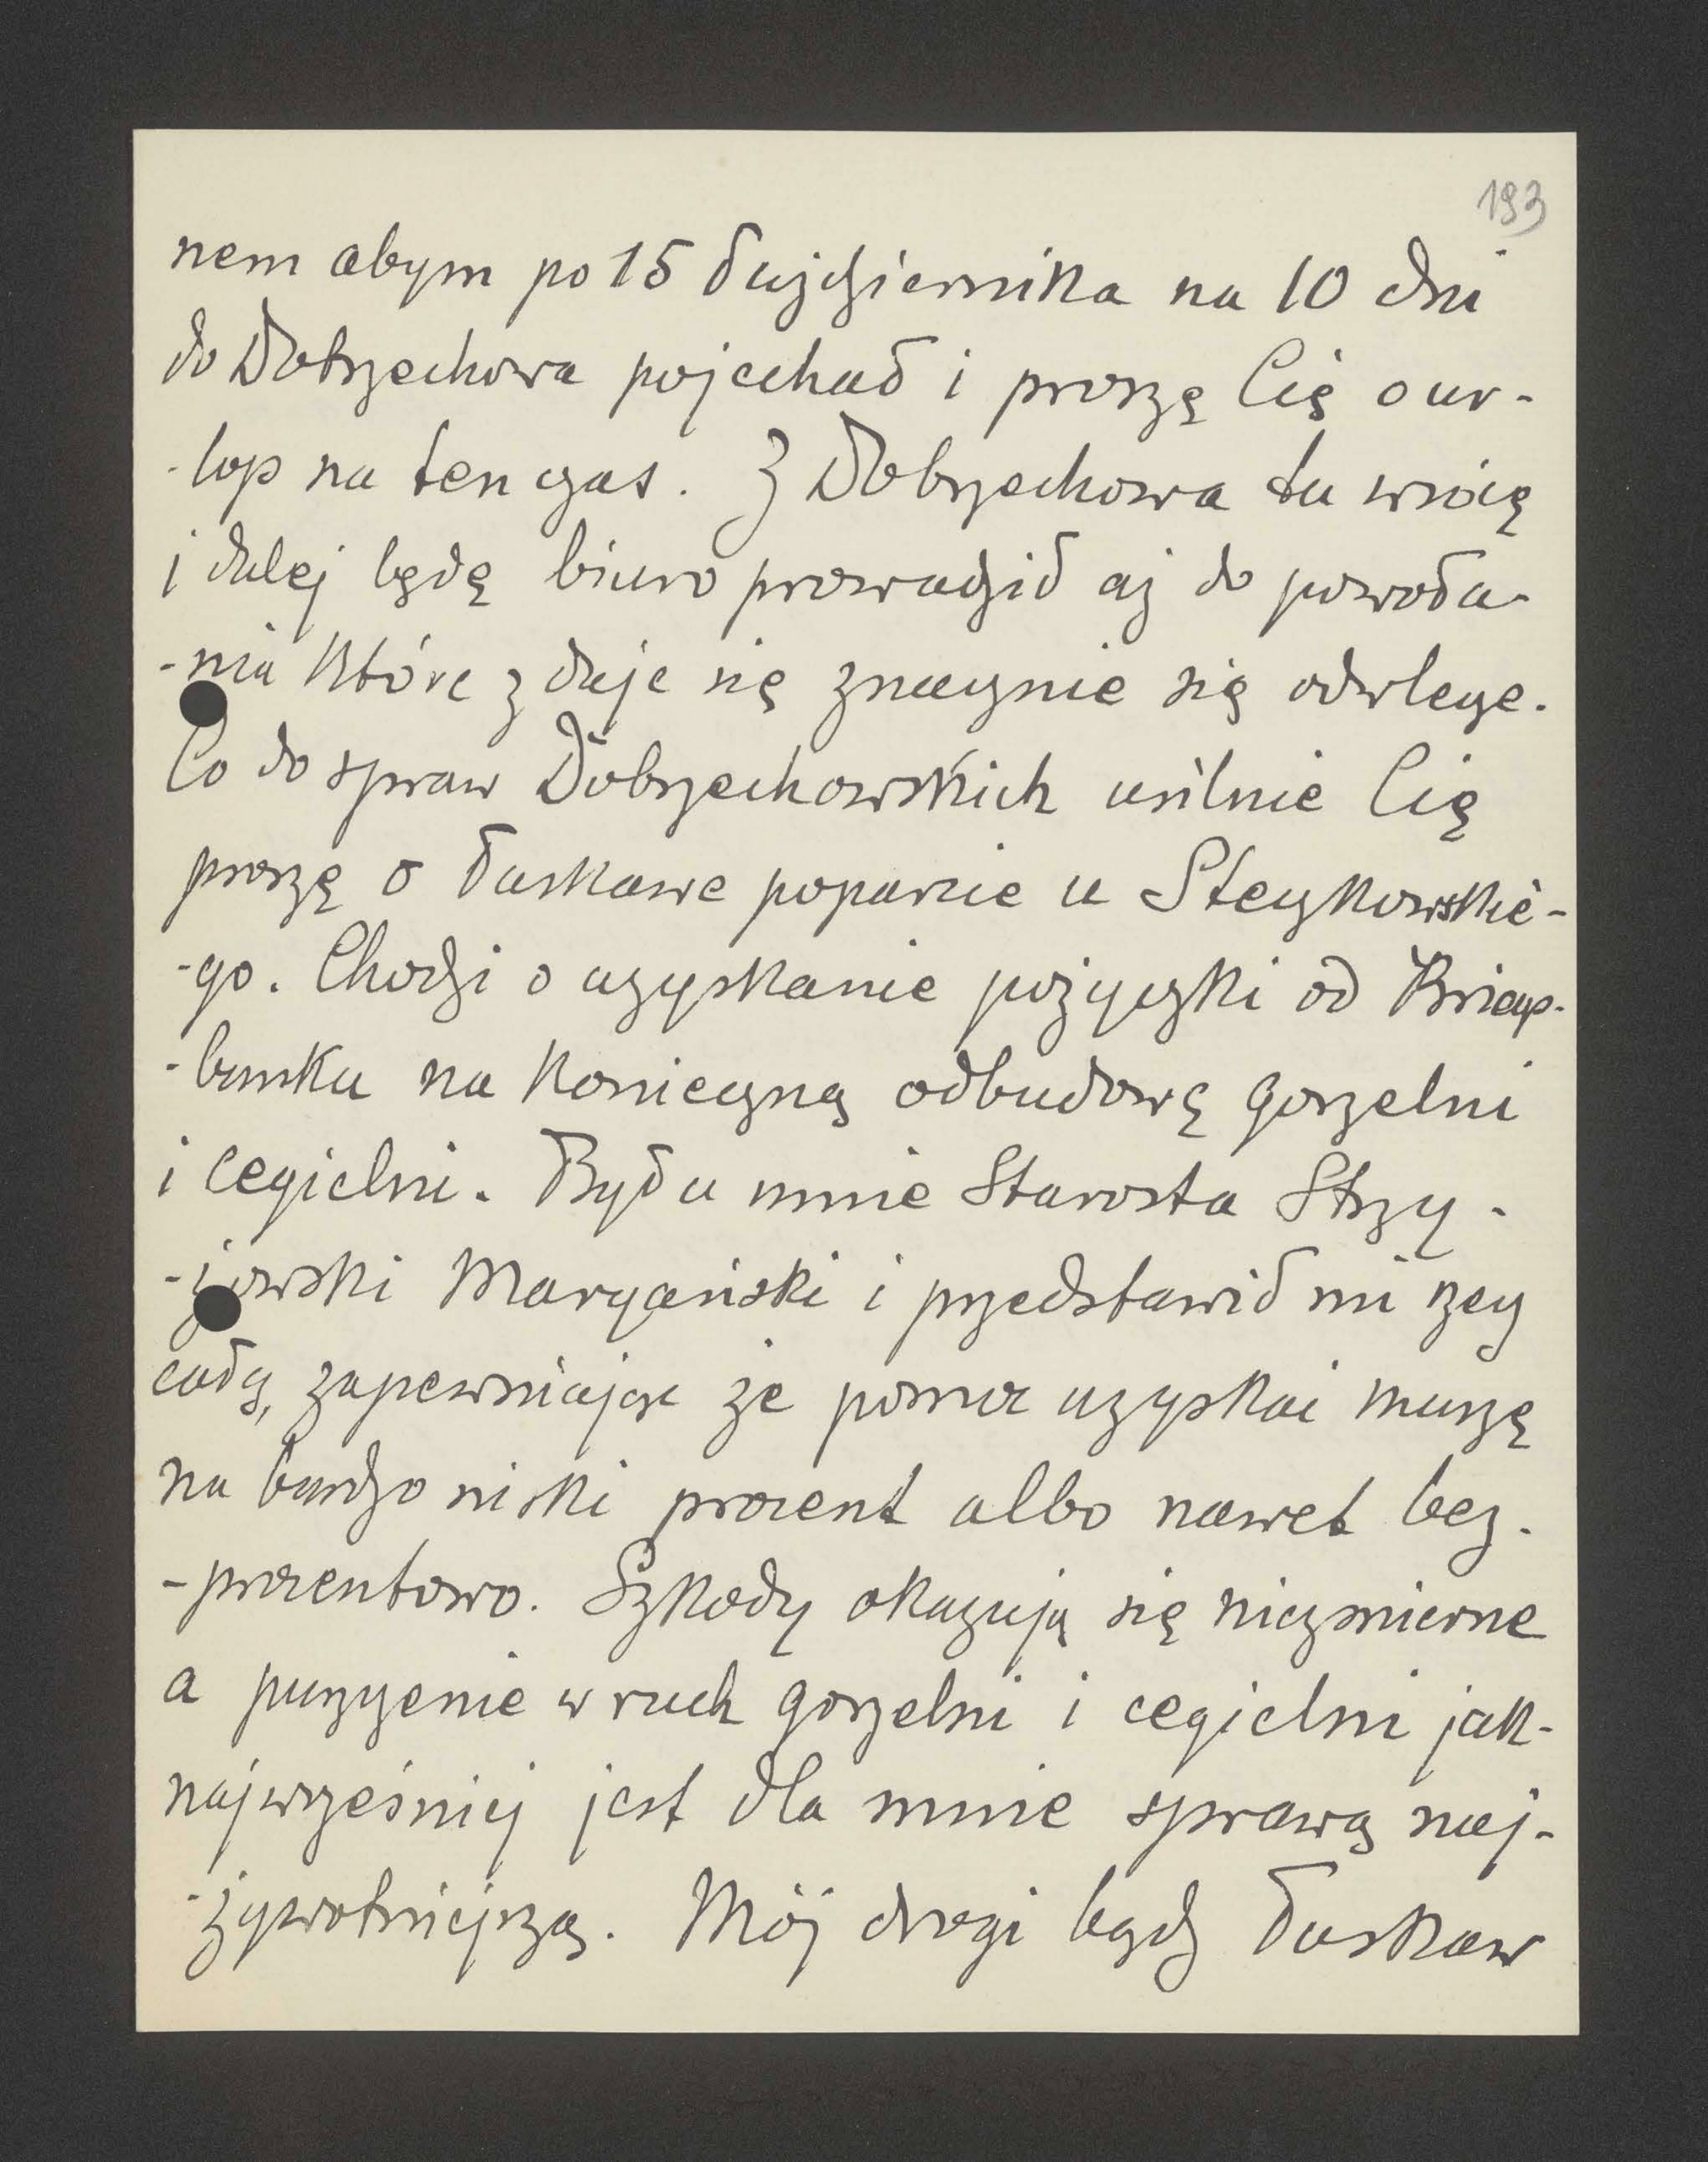 193
nem abym po 15 Października na 10 dni
do Dobrzechowa pojechał i proszę Cię o ur-
-lop na ten czas. Z Dobrzechowa tu wrócę
i dalej będę biuro prowadził aż do powoła-
-nia które zdaje się znacznie się odwlecze.
Co do spraw Dobrzechowskich usilnie Cię
proszę o łaskawe poparcie u Steczkowskie-
-go. Chodzi o uzyskanie pożyczki od Kriegs-
-banku na konieczną odbudowę gorzelni
i cegielni. Był u mnie Starosta Strzy-
-żowski Maryański i przedstawił mi rzecz
całą, zapewniając że pomoc uzyskać muszę
na bardzo niski procent albo nawet bez-
-procentowo. Szkody okazują się niezmierne
a puszczenie w ruch gorzelni i cegielni jak-
najwcześniej jest dla mnie sprawą naj-
-żywotniejszą. Mój drogi bądź łaskaw